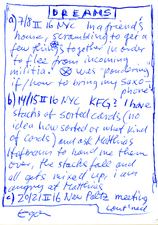 DREAMS
a) 7/8 II 16 NYC In a friend's
house, scrambling to get a
few things together in order
to flee from incoming
militia. was pondering
if/how to bring my saxophone
b) 14/15 II 16 NYC KFG? I have
stacks of sorted cards (no
idea how sorted or what kind
of cards) and ask Matthias
to hand me them
over, the stacks fall and
all gets mixed up. I am
angry at Matthias
c) 20/21 II 16 New Paltz meeting
continued